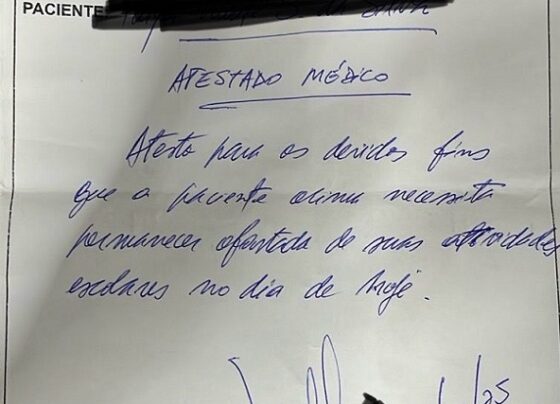 PACIENTE
ATESTADO MÉDICO
Atesto para os devidos fins
que a paciente acima necessita
permanecer afastada de suas atividades
escolares no dia de hoje.
/25